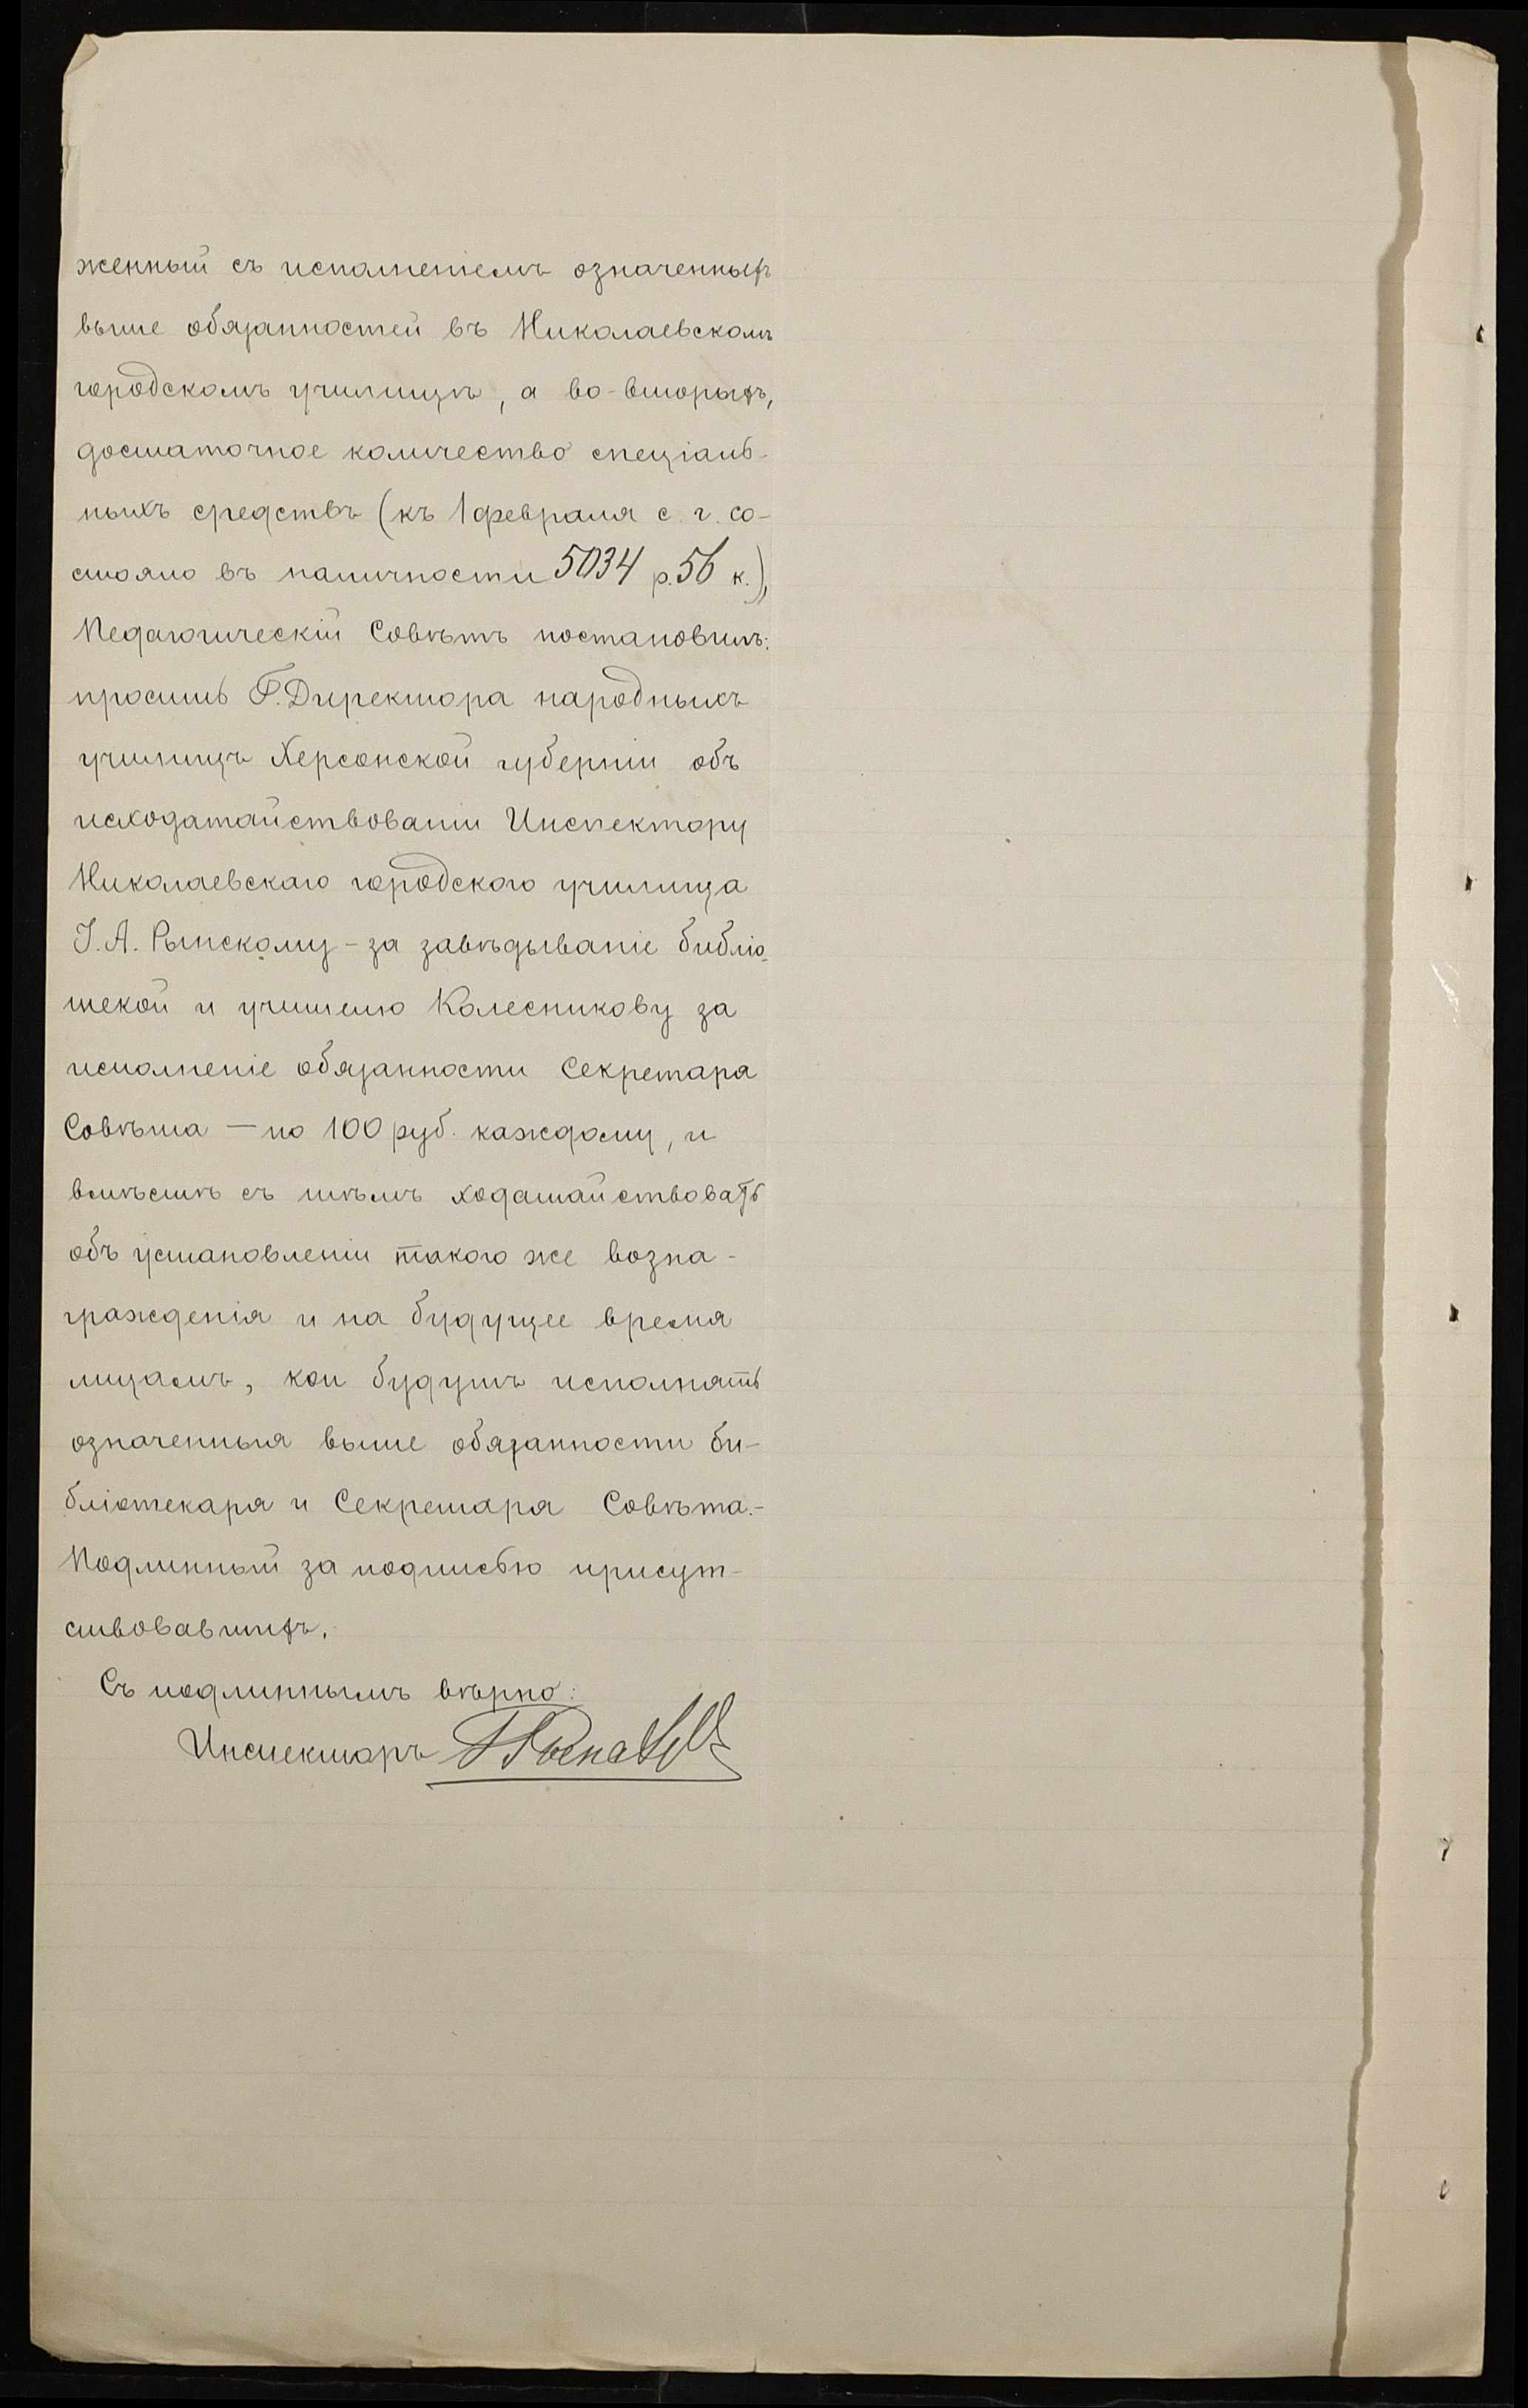 женный съ исполненіемъ означенныхъ
выше обязанностей въ Николаевскомъ
городскомъ училищѣ, а во-вторыхъ,
достаточное количество спеціаль-
ныхъ средствъ (къ 1 февраля с. г. со-
стояло въ наличности 5034 р. 56 к.),
Педагогическій Совѣтъ постановилъ:
просить Г. Директора народныхъ
училищъ Херсонской губерніи объ
исходатайствованіи Инспектору
Николаевскаго городского училища
І. А. Рыпскому - за завѣдываніе библіо-
текой и учителю Колесникову за
исполненіе обязанности Секретаря
Совѣта — по 100 руб. каждому, и
вмѣстѣ съ тѣмъ ходатайствовать
объ установленіи такого же возна-
гражденія и на будущее время
лицамъ, кои будутъ исполнять
означенныя выше обязанности би-
бліотекаря и Секретаря Совѣта.-
Подлинный за подписью присут-
ствовавшихъ.
Съ подлиннымъ вѣрно:
Инспекторъ